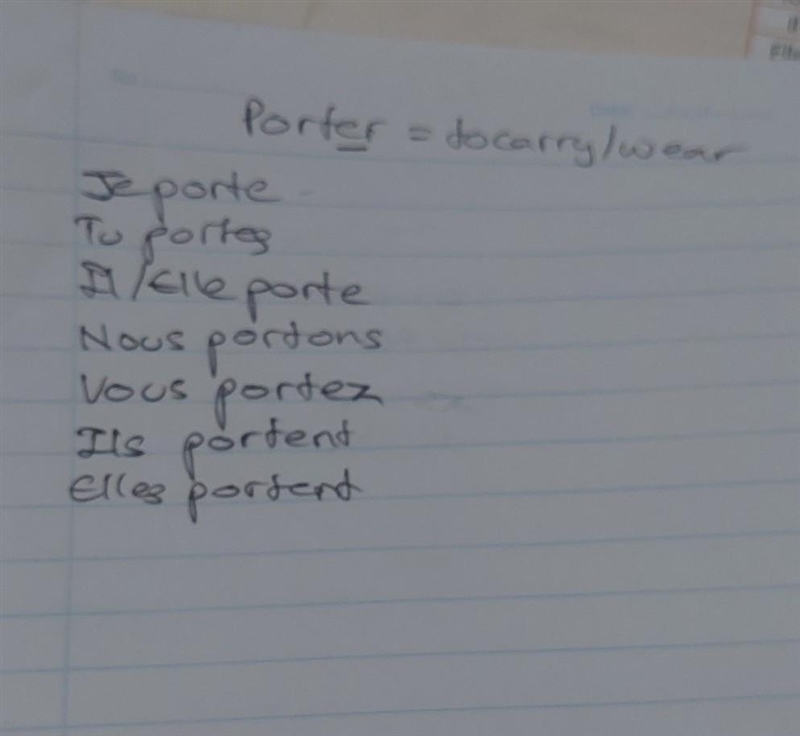 Porter = to carry/wear
Je porte
Tu portes
Il/Elle porte
Nous portons
Vous portez
Ils portent
Elles portent